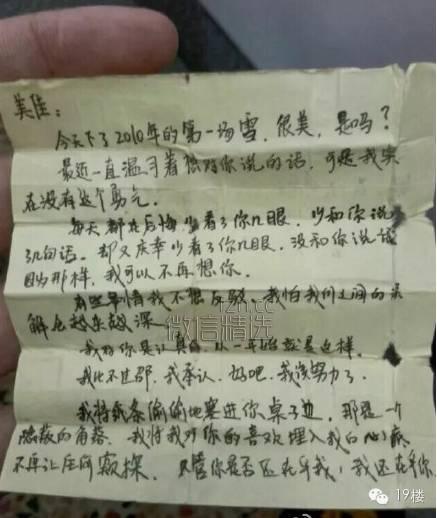 美佳：
今天下了2010年的第一场雪，很美，是吗？
最近一直温习着你对你说的话，可是我实
在没有这个勇气。
每天都在后悔少看了你几眼，少和你说
了几句话。却又庆幸少看了你几眼，没和你说话
因为那样，我可以不再想你。
有些事情我不想反驳、我怕我们之间的误
解会越来越深
我对你是认真的，从一开始就是这样。
我比不过邵，我承认，好吧，我该努力了。
我将纸条偷偷地塞进你桌子边，那是一个
隐蔽的角落，我将我对你的喜欢埋入我的心底
不再让任何窥探。只管你是否还在乎我，我还在乎你
fzn.cc
微信精选
19楼